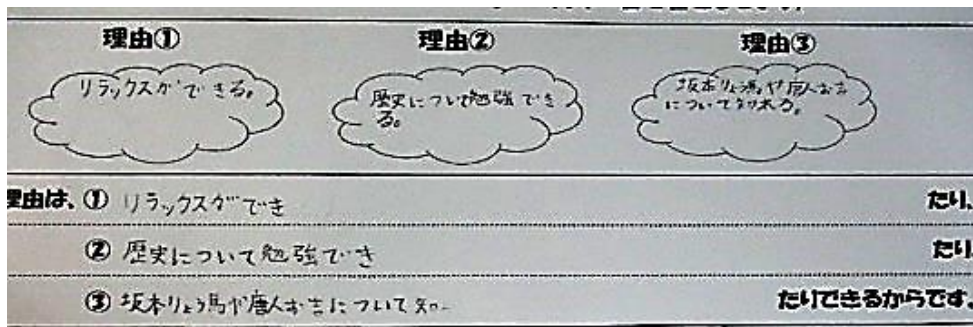 理由①
理由②
理由③
リラックスができる。
歴史について勉強でき
る。
坂本りょう馬や唐人お吉
について知れる。
理由は、① リラックスができ たり、
② 歴史について勉強でき たり、
③ 坂本りょう馬や唐人お吉について知 たりできるからです。